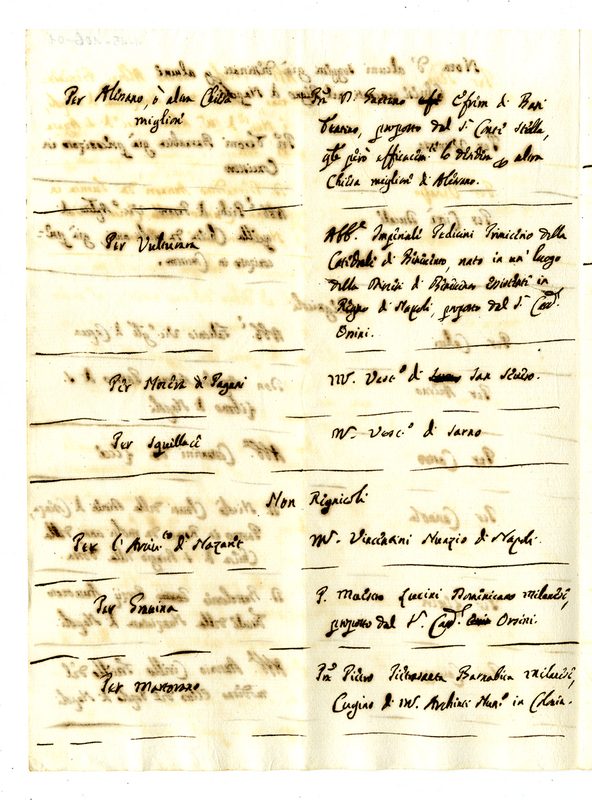 Per Alesano, ò altra Chiesa
migliore
Pre D. Gaetano Efrem di Bari
Teatino, proposto dal Sr Conte Stella,
che però efficacemte lo desidera altra
Chiesa migliore di Alesano.
Per Vulturara
Abbe. Imperiali Pedicini Primicerio della
Catedrale di Benevento nato in un' luogo
della Diocesi di Benevento esistente in
Regno di Napoli, proposto dal Sr. Cardl
Orsini.
Per Nocera de' Pagani
Mr. Vesco di San Severo.
Per Squillace
Mr. Vesco di Sarno
Non Regnicoli
Per l'Arcivto di Nazaret
Mr. Vincentini Nunzio di Napoli.
Per Gravina
P. Maestro Lucini Domenicano Milanese,
proposto dal Sr. Cardl Orsini.
Per Martorano
Pre Pietro Pietrasanta Barnabita Milanese,
Cugino di Mr. Archinti Nunzo in Colonia.